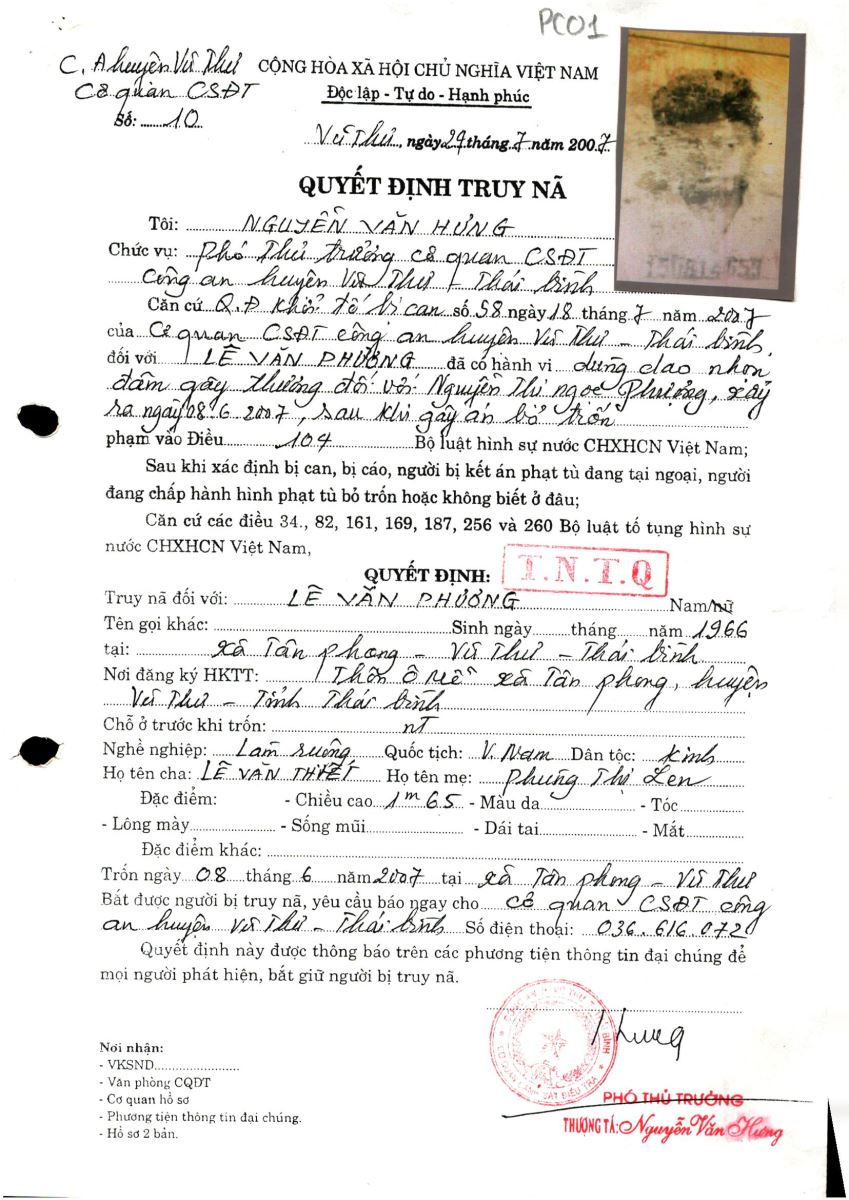 PC01
C. A huyện Vũ Thư CỘNG HÒA XÃ HỘI CHỦ NGHĨA VIỆT NAM
Cơ quan CSĐT Độc lập - Tự do - Hạnh phúc
Số: 10
Vũ Thư, ngày 29 tháng 7 năm 2007
QUYẾT ĐỊNH TRUY NÃ
Tôi: NGUYỄN VĂN HƯNG
Chức vụ: Phó Thủ trưởng cơ quan CSĐT
Công an huyện Vũ Thư - Thái bình
Căn cứ Q.Đ khởi tố bị can số 58 ngày 18 tháng 7 năm 2007
của Cơ quan CSĐT công an huyện Vũ Thư - Thái bình,
đối với LÊ VĂN PHƯƠNG đã có hành vi dùng dao nhọn
đâm gây thương đối với Nguyễn Thị ngọc Phượng, xảy
ra ngày 08.6.2007, sau khi gây án bỏ trốn
phạm vào Điều 104 Bộ luật hình sự nước CHXHCN Việt Nam;
Sau khi xác định bị can, bị cáo, người bị kết án phạt tù đang tại ngoại, người
đang chấp hành hình phạt tù bỏ trốn hoặc không biết ở đâu;
Căn cứ các điều 34., 82, 161, 169, 187, 256 và 260 Bộ luật tố tụng hình sự
nước CHXHCN Việt Nam,
QUYẾT ĐỊNH: T.N.T.Q
Truy nã đối với: LÊ VĂN PHƯƠNG Nam/nữ
Tên gọi khác: Sinh ngày tháng năm 1966
tại: xã Tân phong - Vũ Thư - Thái bình
Nơi đăng ký HKTT: Thôn Ô xã Tân phong, huyện
Vũ Thư - Tỉnh Thái bình
Chỗ ở trước khi trốn: nt
Nghề nghiệp: Làm ruộng Quốc tịch: V. Nam Dân tộc: Kinh
Họ tên cha: LÊ VĂN THIẾT Họ tên mẹ: Phùng Thị Len
Đặc điểm: - Chiều cao 1m65 - Màu da - Tóc
- Lông mày - Sống mũi - Dái tai - Mắt
Đặc điểm khác:
Trốn ngày 08 tháng 6 năm 2007 tại xã Tân phong - Vũ Thư
Bắt được người bị truy nã, yêu cầu báo ngay cho cơ quan CSĐT công
an huyện Vũ Thư - Thái bình Số điện thoại: 036.616.072
Quyết định này được thông báo trên các phương tiện thông tin đại chúng để
mọi người phát hiện, bắt giữ người bị truy nã.
Nơi nhận:
- VKSND
- Văn phòng CQĐT
- Cơ quan hồ sơ
- Phương tiện thông tin đại chúng.
- Hồ sơ 2 bản.
PHÓ THỦ TRƯỞNG
THƯỢNG TÁ: Nguyễn Văn Hưng